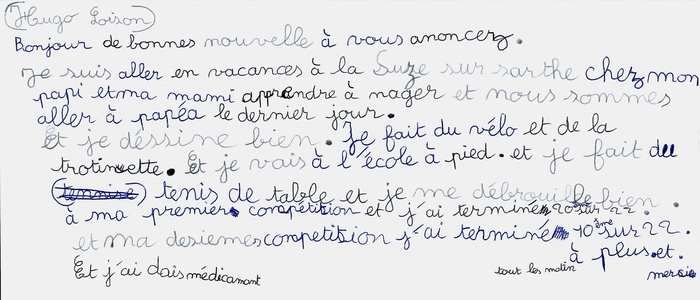 Hugo Loison
Bonjour de bonnes nouvelle à vous anoncerz.
Je suis aller en vacances à la Suze sur sarthe chez mon
papi et ma mami apprendre à nager et nous sommes
aller à papéa le dernier jour.
Et je déssine bien. Je fait du vélo et de la
trotinette. Et je vais à l'école à pied. et je fait du
tennise tenis de table et je me débrouille bien.
à ma premiers compétition et j'ai terminé 20 sur 22.
et ma desiemes competition j'ai terminé 10ème sur 22.
à plus.et.
Et j'ai dais médicamant tout les matin mersie